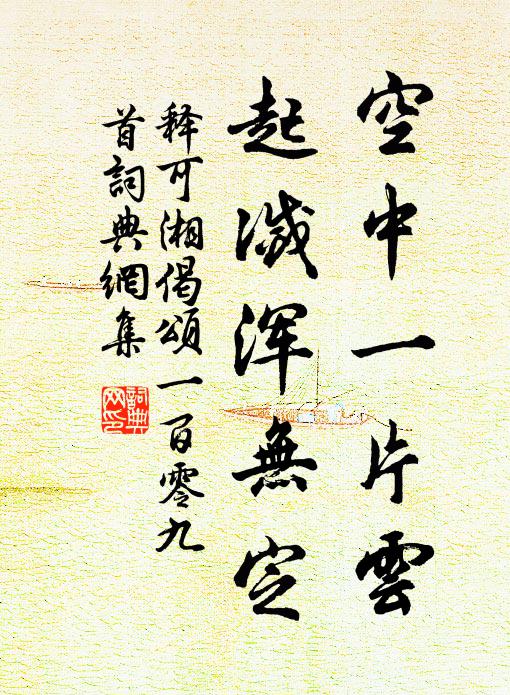 空中一片雲
起滅渾無定
释可湘偈頌一百零九
首詞典網集
詞典
网印